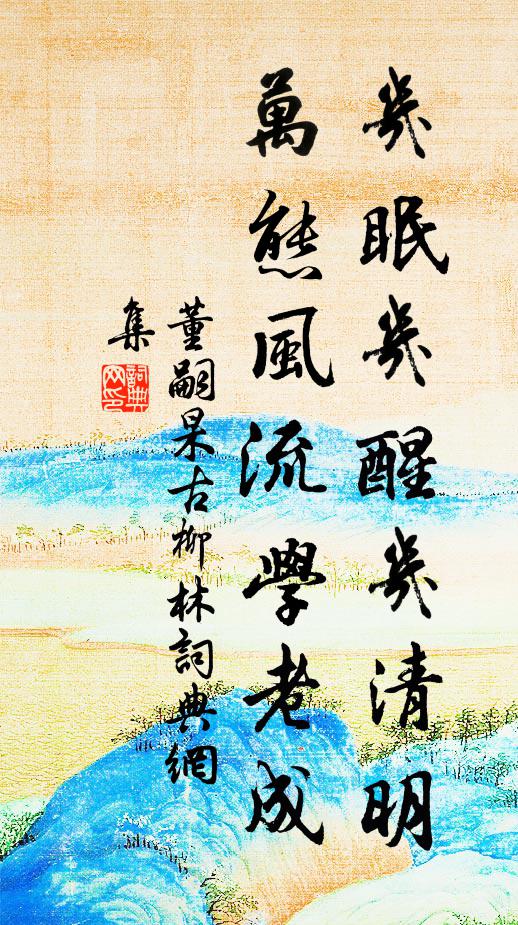 幾眠幾醒幾清明
萬態風流學老成
董嗣杲古柳林詞典網
集
詞典
网印